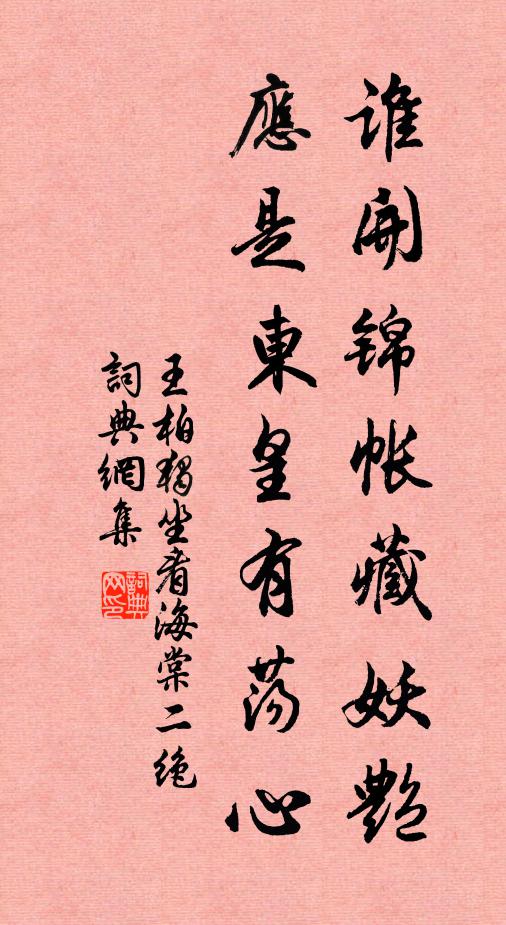 誰開錦帳藏妖艷
應是東皇有蕩心
王柏獨坐看海棠二絕
詞典網集
詞典网印